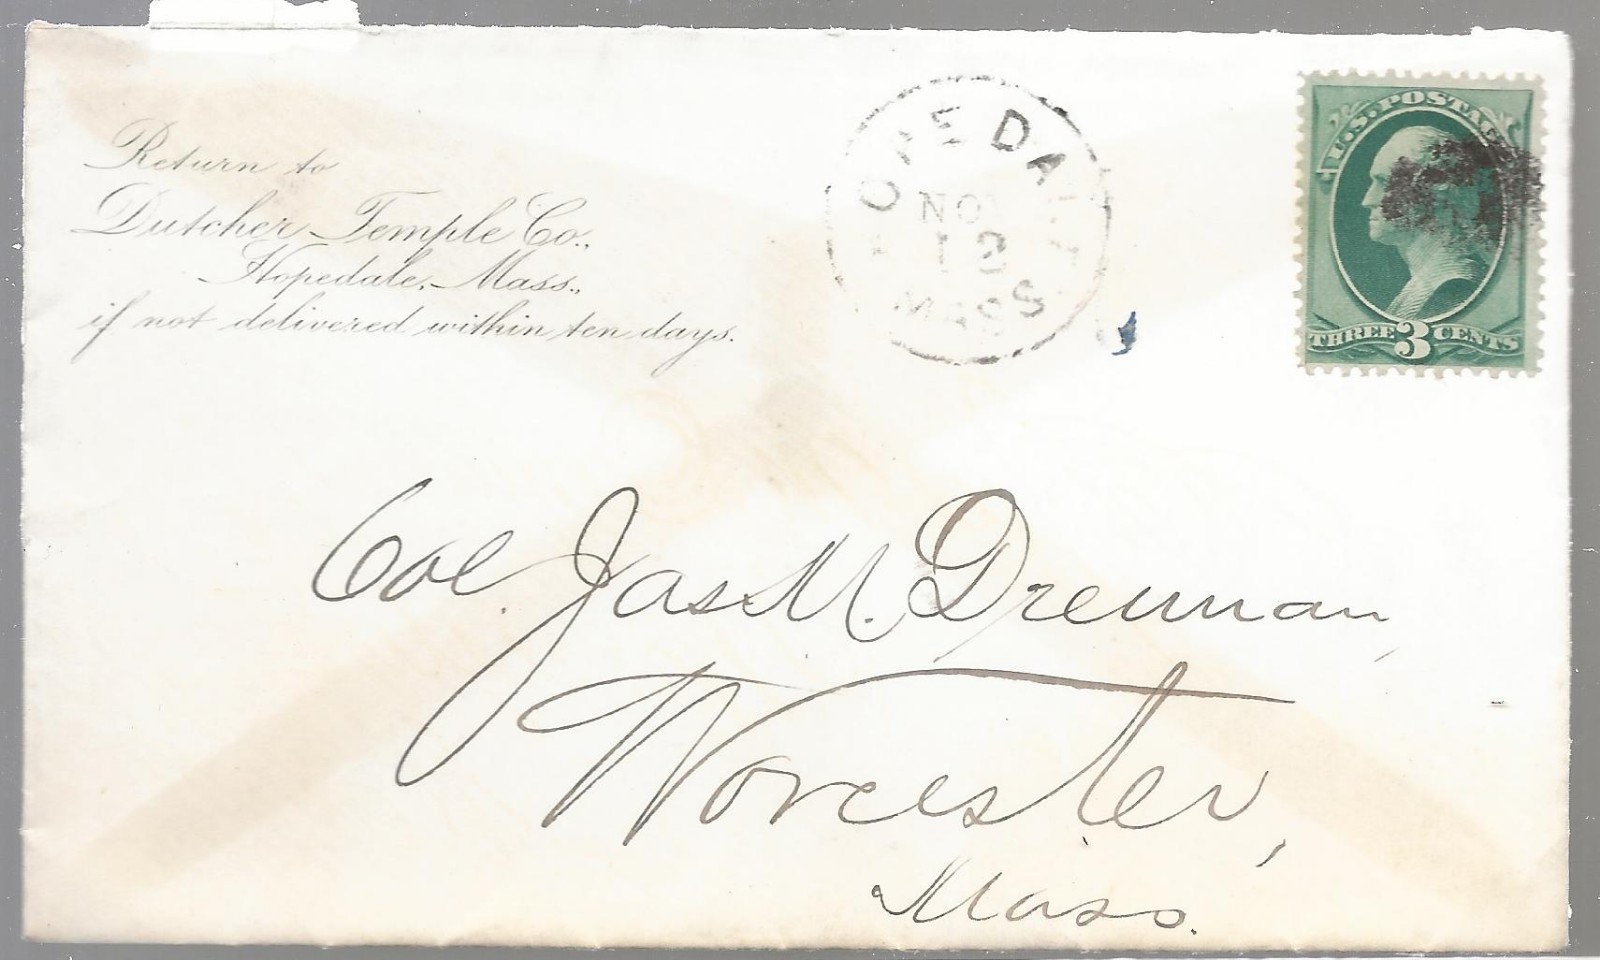 Return to
Dutcher Temple Co.,
Hopedale, Mass.,
if not delivered within ten days.
HOPEDALE
NOV
12
MASS
U.S. POSTAGE
THREE 3 CENTS
Col. Jas M. Drennan,
Worcester,
Mass.